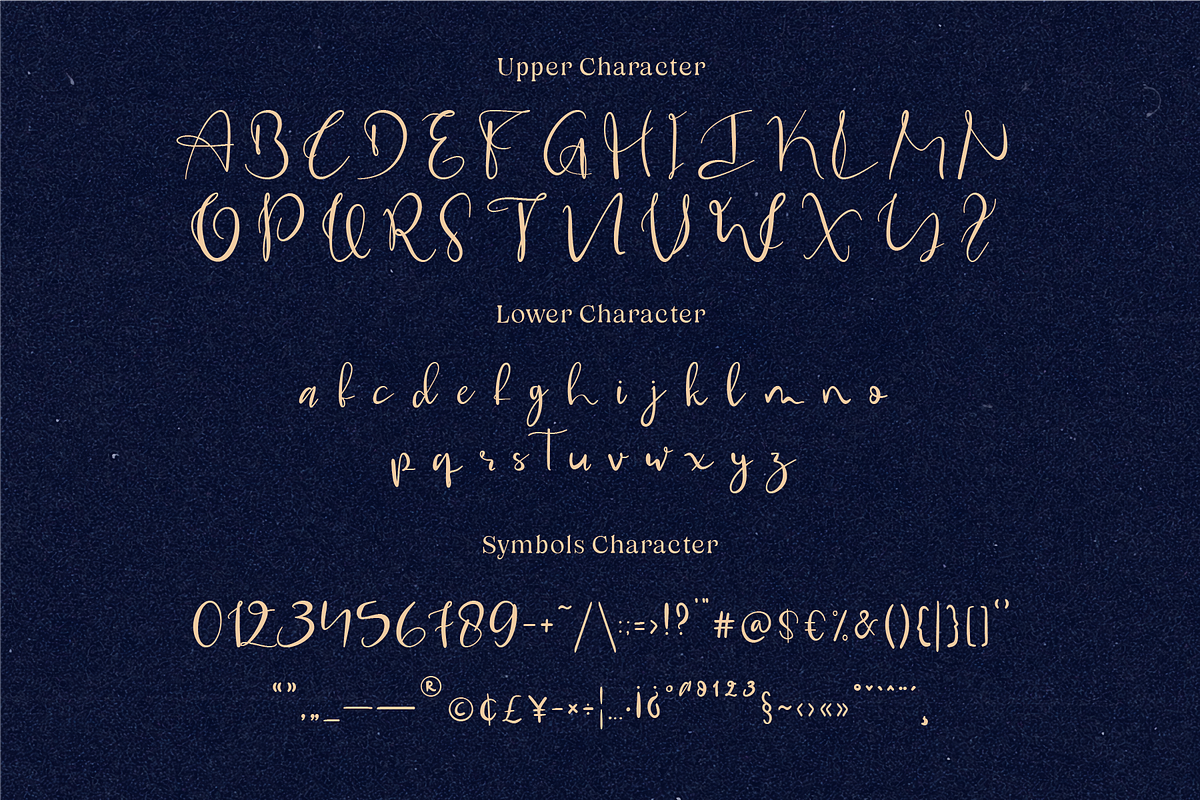 Upper Character
A B C D E F G H I J K L M N
O P Q R S T U V W X Y Z
Lower Character
a b c d e f g h i j k l m n o
p q r s t u v w x y z
Symbols Character
0123456789-+~/\:;=>!?'"#@$€%&(){|}[]‘’
“”‚„_–—®©¢£¥-×÷¦…·¡¿°ªº123§~‹›«»°ˇ`^¨´¸